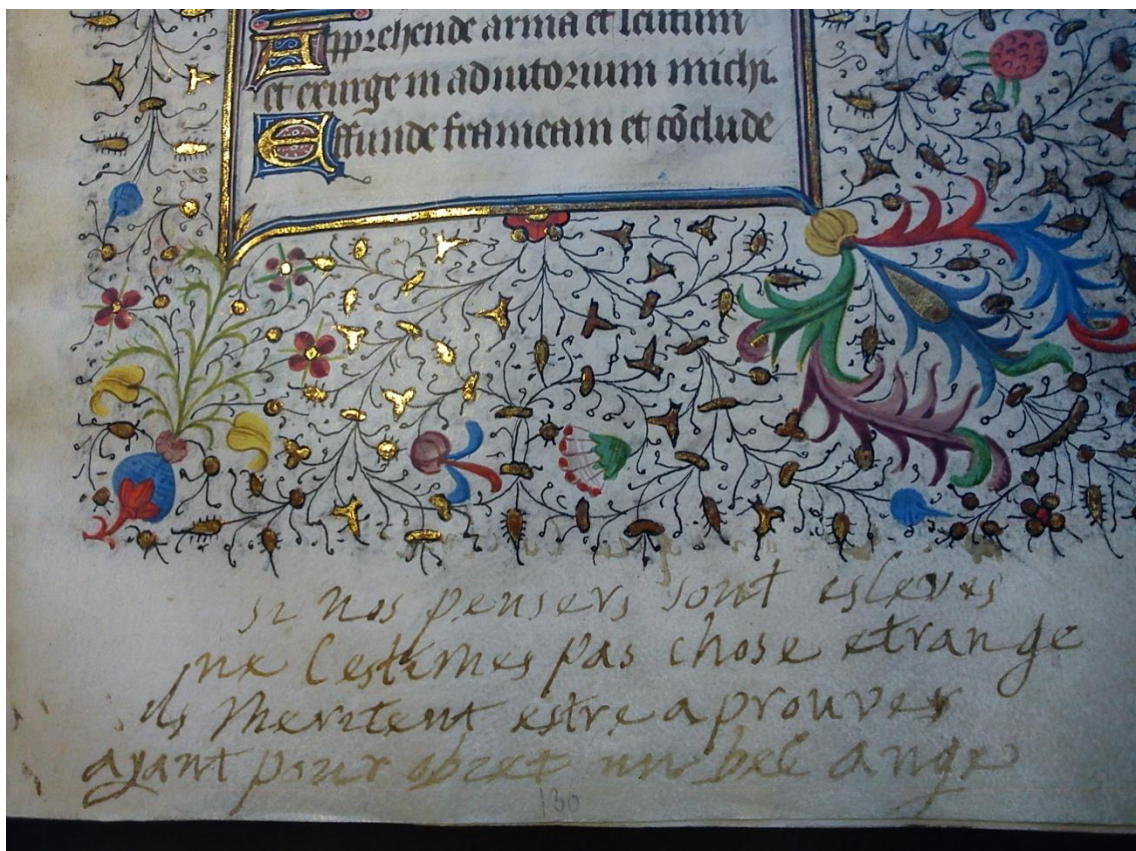 Apprehende arma et scutum
et exurge in adiutorium michi.
Effunde frameam et cōclude
si nos pensers sont esleves
ne l'estimes pas chose etrange
ils meritent estre aprouves
ayant pour obiet un bel ange
130